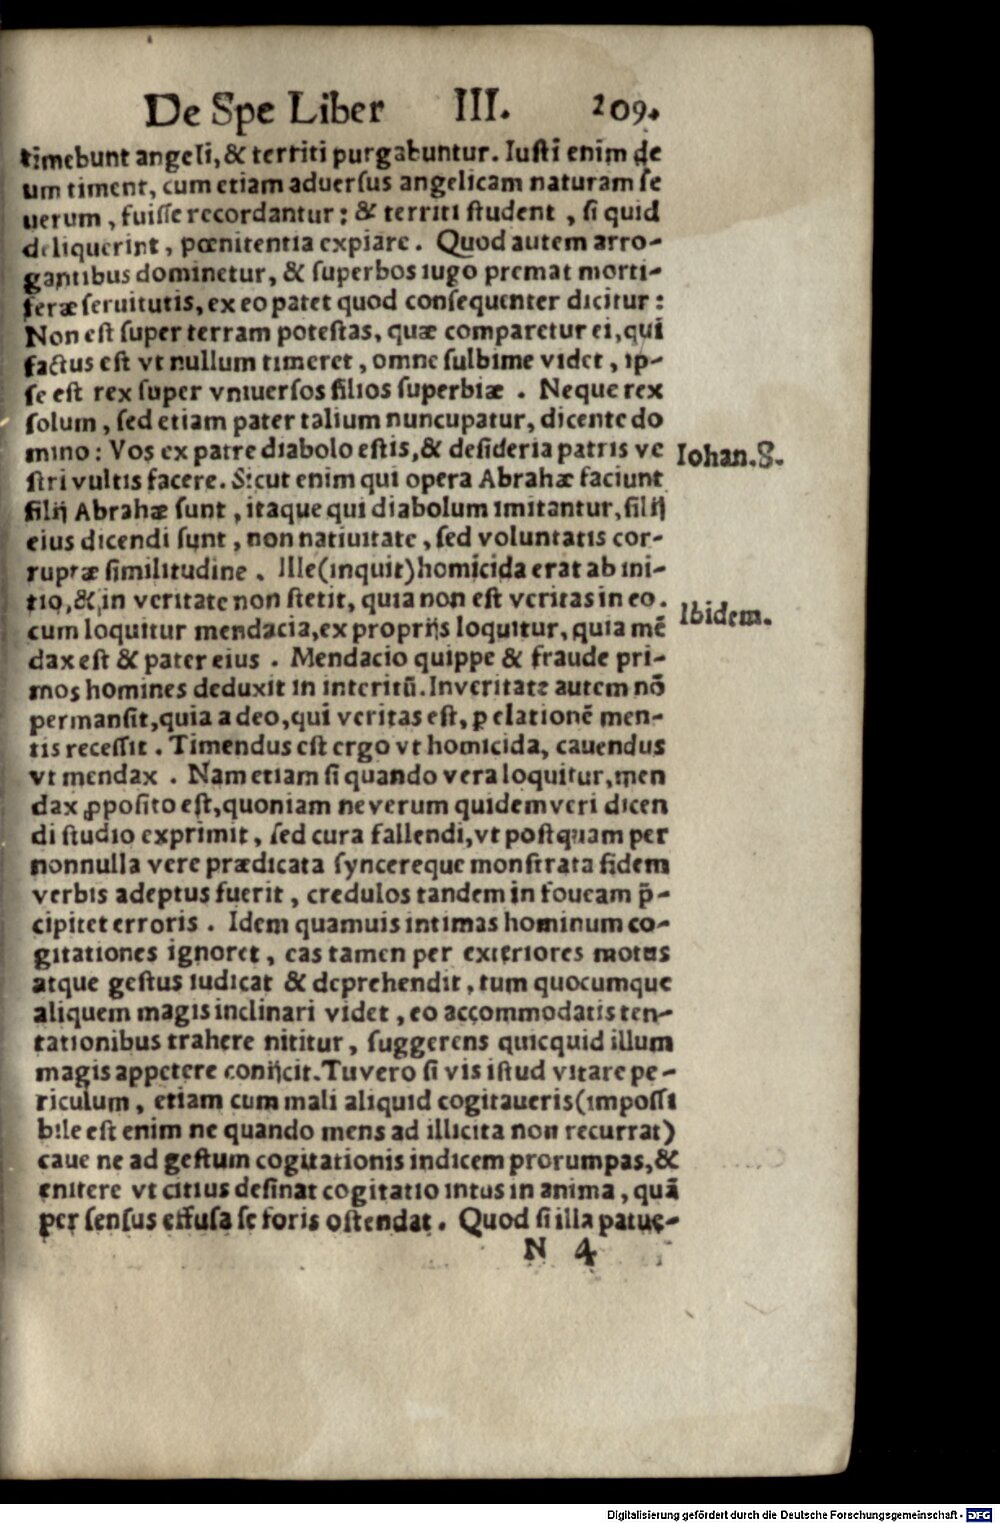 De Spe Liber III. 209.
timebunt angeli, & territi purgabuntur. Iusti enim de
um timent, cum etiam aduersus angelicam naturam se
uerum, fuisse recordantur: & territi student, si quid
deliquerint, pœnitentia expiare. Quod autem arro-
gantibus dominetur, & superbos iugo premat morti-
feræ seruitutis, ex eo patet quod consequenter dicitur:
Non est super terram potestas, quæ comparetur ei, qui
factus est vt nullum timeret, omne sulbime videt, ip-
se est rex super vniuersos filios superbiæ. Neque rex
solum, sed etiam pater talium nuncupatur, dicente do
mino: Vos ex patre diabolo estis, & desideria patris ve
stri vultis facere. Sicut enim qui opera Abrahæ faciunt
filij Abrahæ sunt, itaque qui diabolum imitantur, filij
eius dicendi sunt, non natiuitate, sed voluntatis cor-
ruptæ similitudine. Ille (inquit) homicida erat ab ini-
tio, & in veritate non stetit, quia non est veritas in eo.
cum loquitur mendacia, ex proprijs loquitur, quia mē
dax est & pater eius. Mendacio quippe & fraude pri-
mos homines deduxit in interitū. In veritate autem nō
permansit, quia a deo, qui veritas est, ꝑ elationē men-
tis recessit. Timendus est ergo vt homicida, cauendus
vt mendax. Nam etiam si quando vera loquitur, men
dax ꝓposito est, quoniam ne verum quidem veri dicen
di studio exprimit, sed cura fallendi, vt postquam per
nonnulla vere prædicata syncereque monstrata fidem
verbis adeptus fuerit, credulos tandem in foueam p̄-
cipitet erroris. Idem quamuis intimas hominum co-
gitationes ignoret, eas tamen per exteriores motus
atque gestus iudicat & deprehendit, tum quocumque
aliquem magis inclinari videt, eo accommodatis ten-
tationibus trahere nititur, suggerens quicquid illum
magis appetere conijcit. Tu vero si vis istud vitare pe-
riculum, etiam cum mali aliquid cogitaueris (impossi
bile est enim ne quando mens ad illicita non recurrat)
caue ne ad gestum cogitationis indicem prorumpas, &
enitere vt citius desinat cogitatio intus in anima, quā
per sensus effusa se foris ostendat. Quod si illa patue-
N 4
Iohan. 8.
Ibidem.
Digitalisierung gefördert durch die Deutsche Forschungsgemeinschaft - DFG